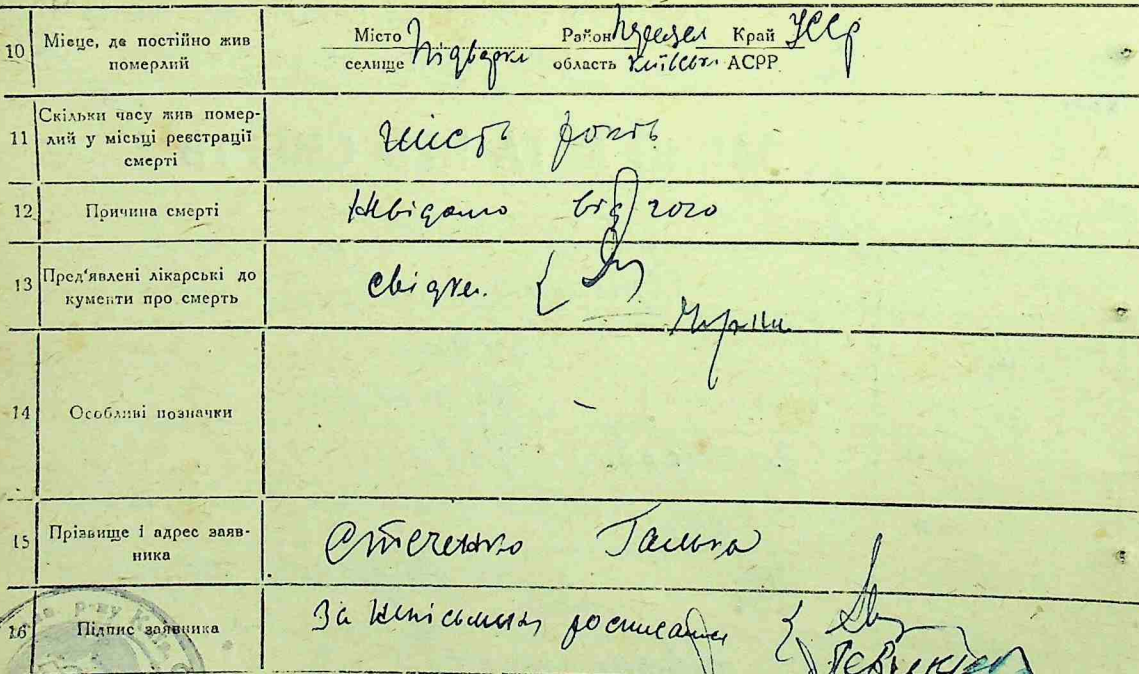 10 Місце, де постійно жив
померлий
Місто Район Край УССР
селище Підварки область Київськ. АСРР
11 Скільки часу жив помер-
лий у місьці реєстрації
смерті
шість років
12 Причина смерті
Невідомо від чого
13 Пред'явлені лікарські до
кументи про смерть
свідки. {
14 Особливі позначки
–
15 Прізвище і адрес заяв-
ника
Стеченко Галька
16 Підпис заявника
За неписьмен росписався {